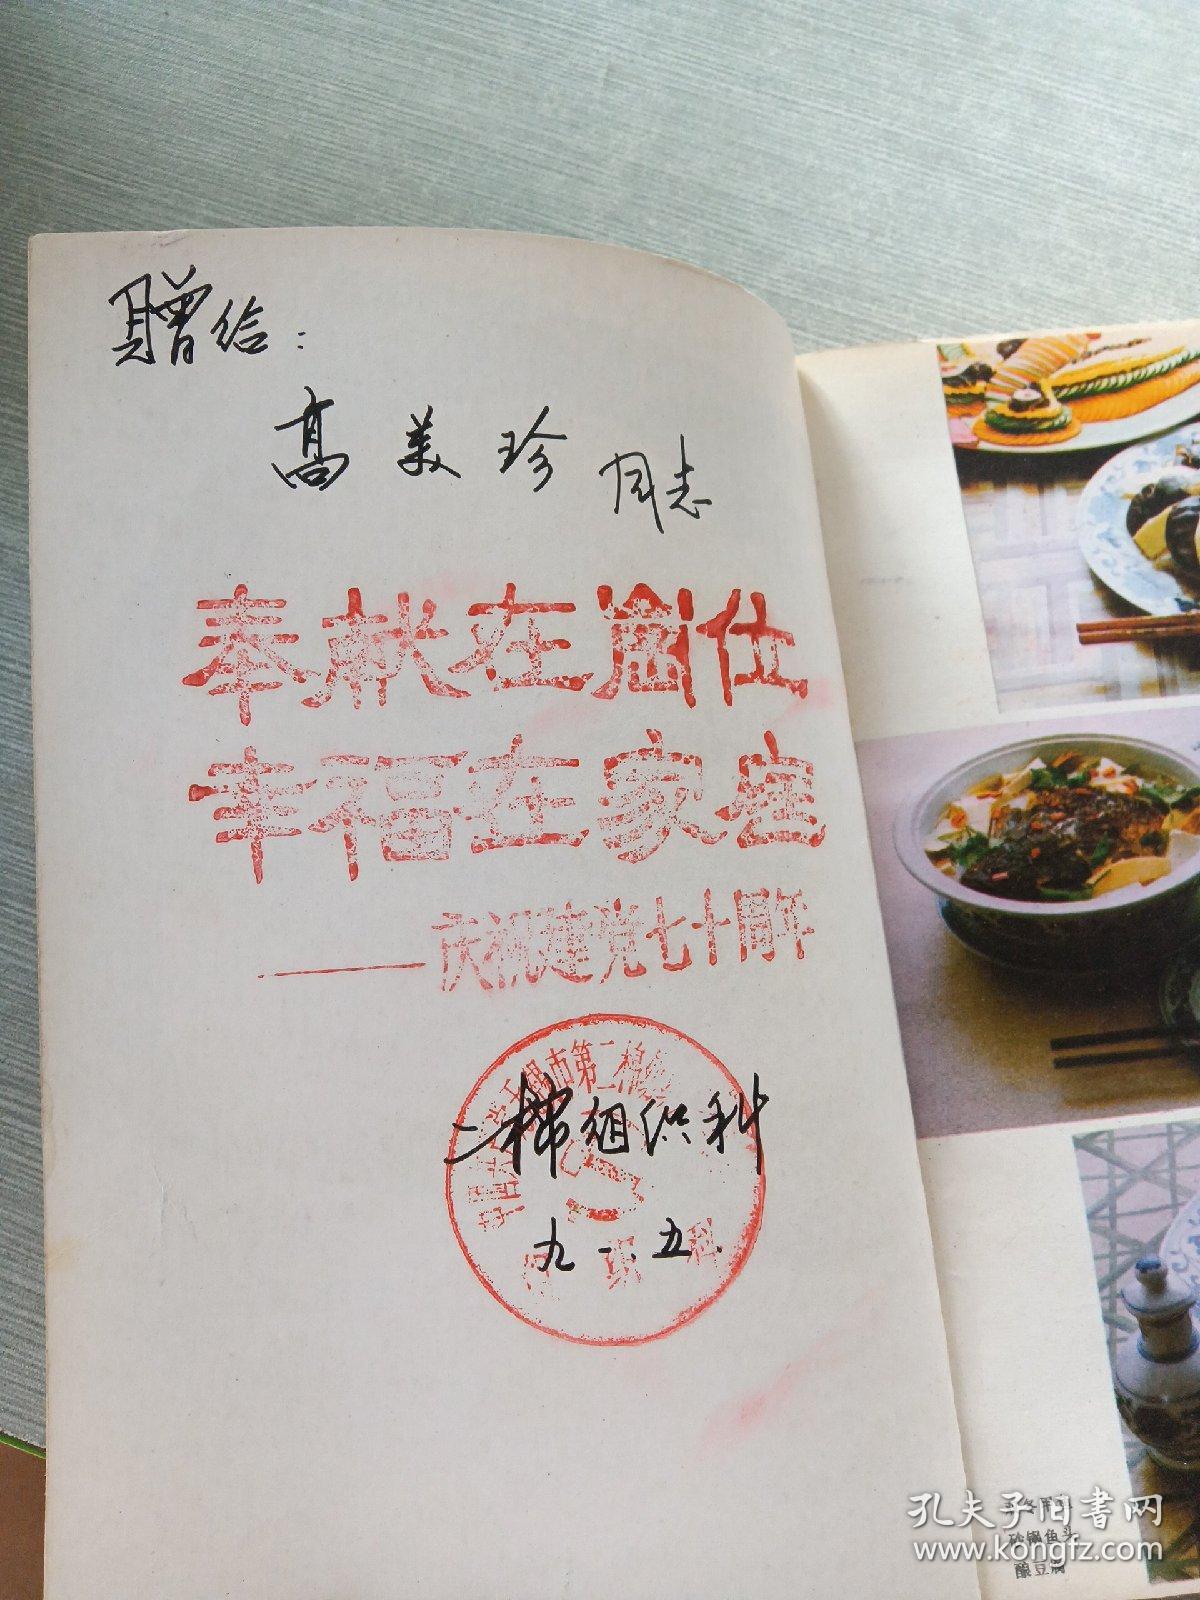 贈给：
高美珍同志
奉献在岗位
幸福在家庭
——庆祝建党七十周年
无锡市第二棉纺
二棉组织科
九一.五.
砂锅鱼头
酿豆腐
孔夫子旧书网
www.kongfz.com